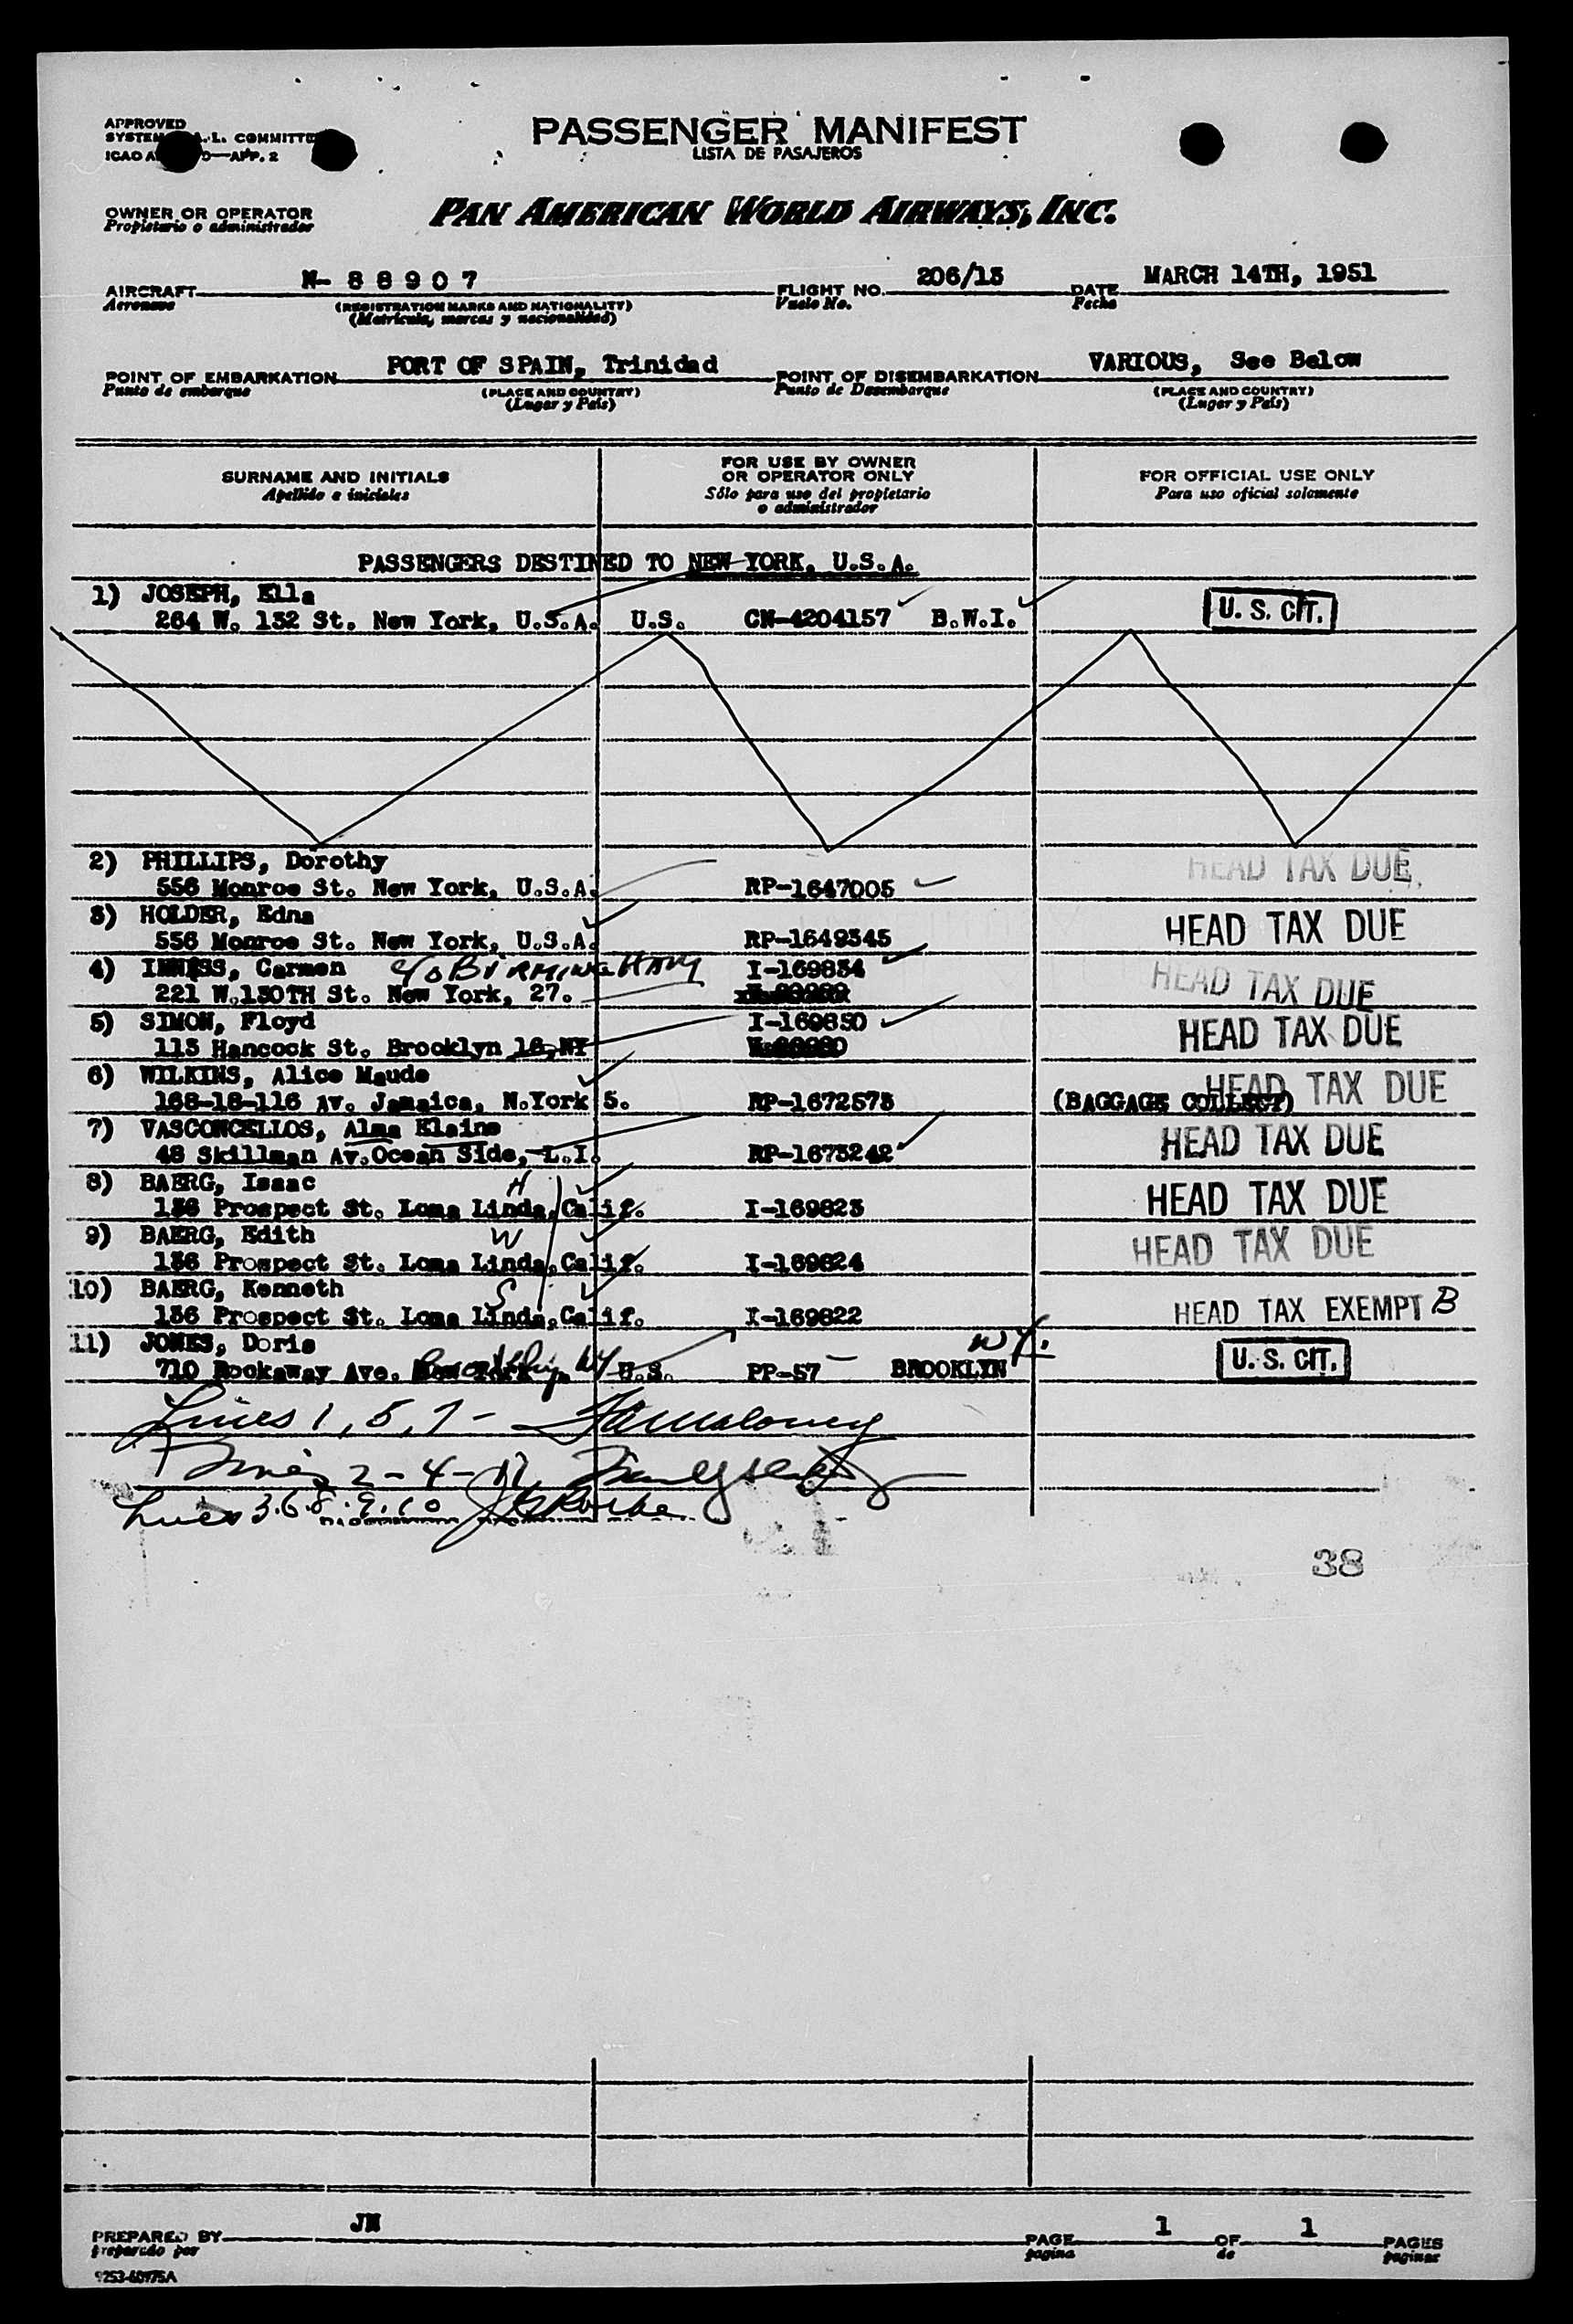 APPROVED
SYSTEM A.L. COMMITTE
ICAO A O—APP. 2
PASSENGER MANIFEST
LISTA DE PASAJEROS
OWNER OR OPERATOR
Propietario o administrador
PAN AMERICAN WORLD AIRWAYS, INC.
AIRCRAFT N- 8 8 9 0 7 FLIGHT NO. 206/13 DATE MARCH 14TH, 1951
Aeronave (REGISTRATION MARKS AND NATIONALITY) Vuelo No. Fecha
(Matrícula, marcas y nacionalidad)
POINT OF EMBARKATION PORT OF SPAIN, Trinidad POINT OF DISEMBARKATION VARIOUS, See Below
Punto de embarque (PLACE AND COUNTRY) Punto de Desembarque (PLACE AND COUNTRY)
(Lugar y País) (Lugar y País)
SURNAME AND INITIALS FOR USE BY OWNER OR OPERATOR ONLY FOR OFFICIAL USE ONLY
Apellido e iniciales Sólo para uso del propietario o administrador Para uso oficial solamente
PASSENGERS DESTINED TO NEW YORK, U.S.A.
1) JOSEPH, Ella
264 W. 132 St. New York, U.S.A. U.S. CN-4204157 B.W.I. U. S. CIT.
2) PHILLIPS, Dorothy HEAD TAX DUE
556 Monroe St. New York, U.S.A. RP-1647005
3) HOLDER, Edna HEAD TAX DUE
556 Monroe St. New York, U.S.A. RP-1649345
4) INNISS, Carmen c/o BIRMINGHAM I-169834 HEAD TAX DUE
221 W.130TH St. New York, 27.
5) SIMON, Floyd I-169830 HEAD TAX DUE
113 Hancock St. Brooklyn 16, NY
6) WILKINS, Alice Maude HEAD TAX DUE
168-18-116 Av. Jamaica, N.York 5. RP-1672573 (BAGGAGE COLLECT)
7) VASCONCELLOS, Alma Elaine HEAD TAX DUE
48 Skillman Av.Ocean Side, L.I. RP-1673242
8) BAERG, Isaac H HEAD TAX DUE
136 Prospect St. Loma Linda, Calif. I-169823
9) BAERG, Edith W HEAD TAX DUE
136 Prospect St. Loma Linda, Calif. I-169824
10) BAERG, Kenneth S HEAD TAX EXEMPT B
136 Prospect St. Loma Linda, Calif. I-169822
11) JONES, Doris NY. U. S. CIT.
710 Rockaway Ave. Brooklyn NY U.S. PP-57 BROOKLYN
Lines 1, 5, 7 -
Lines 2 - 4 - 11
Lines 3.6.8.9.10
38
PREPARED BY JM PAGE 1 OF 1 PAGES
preparado por pagina de paginas
9253-60175A